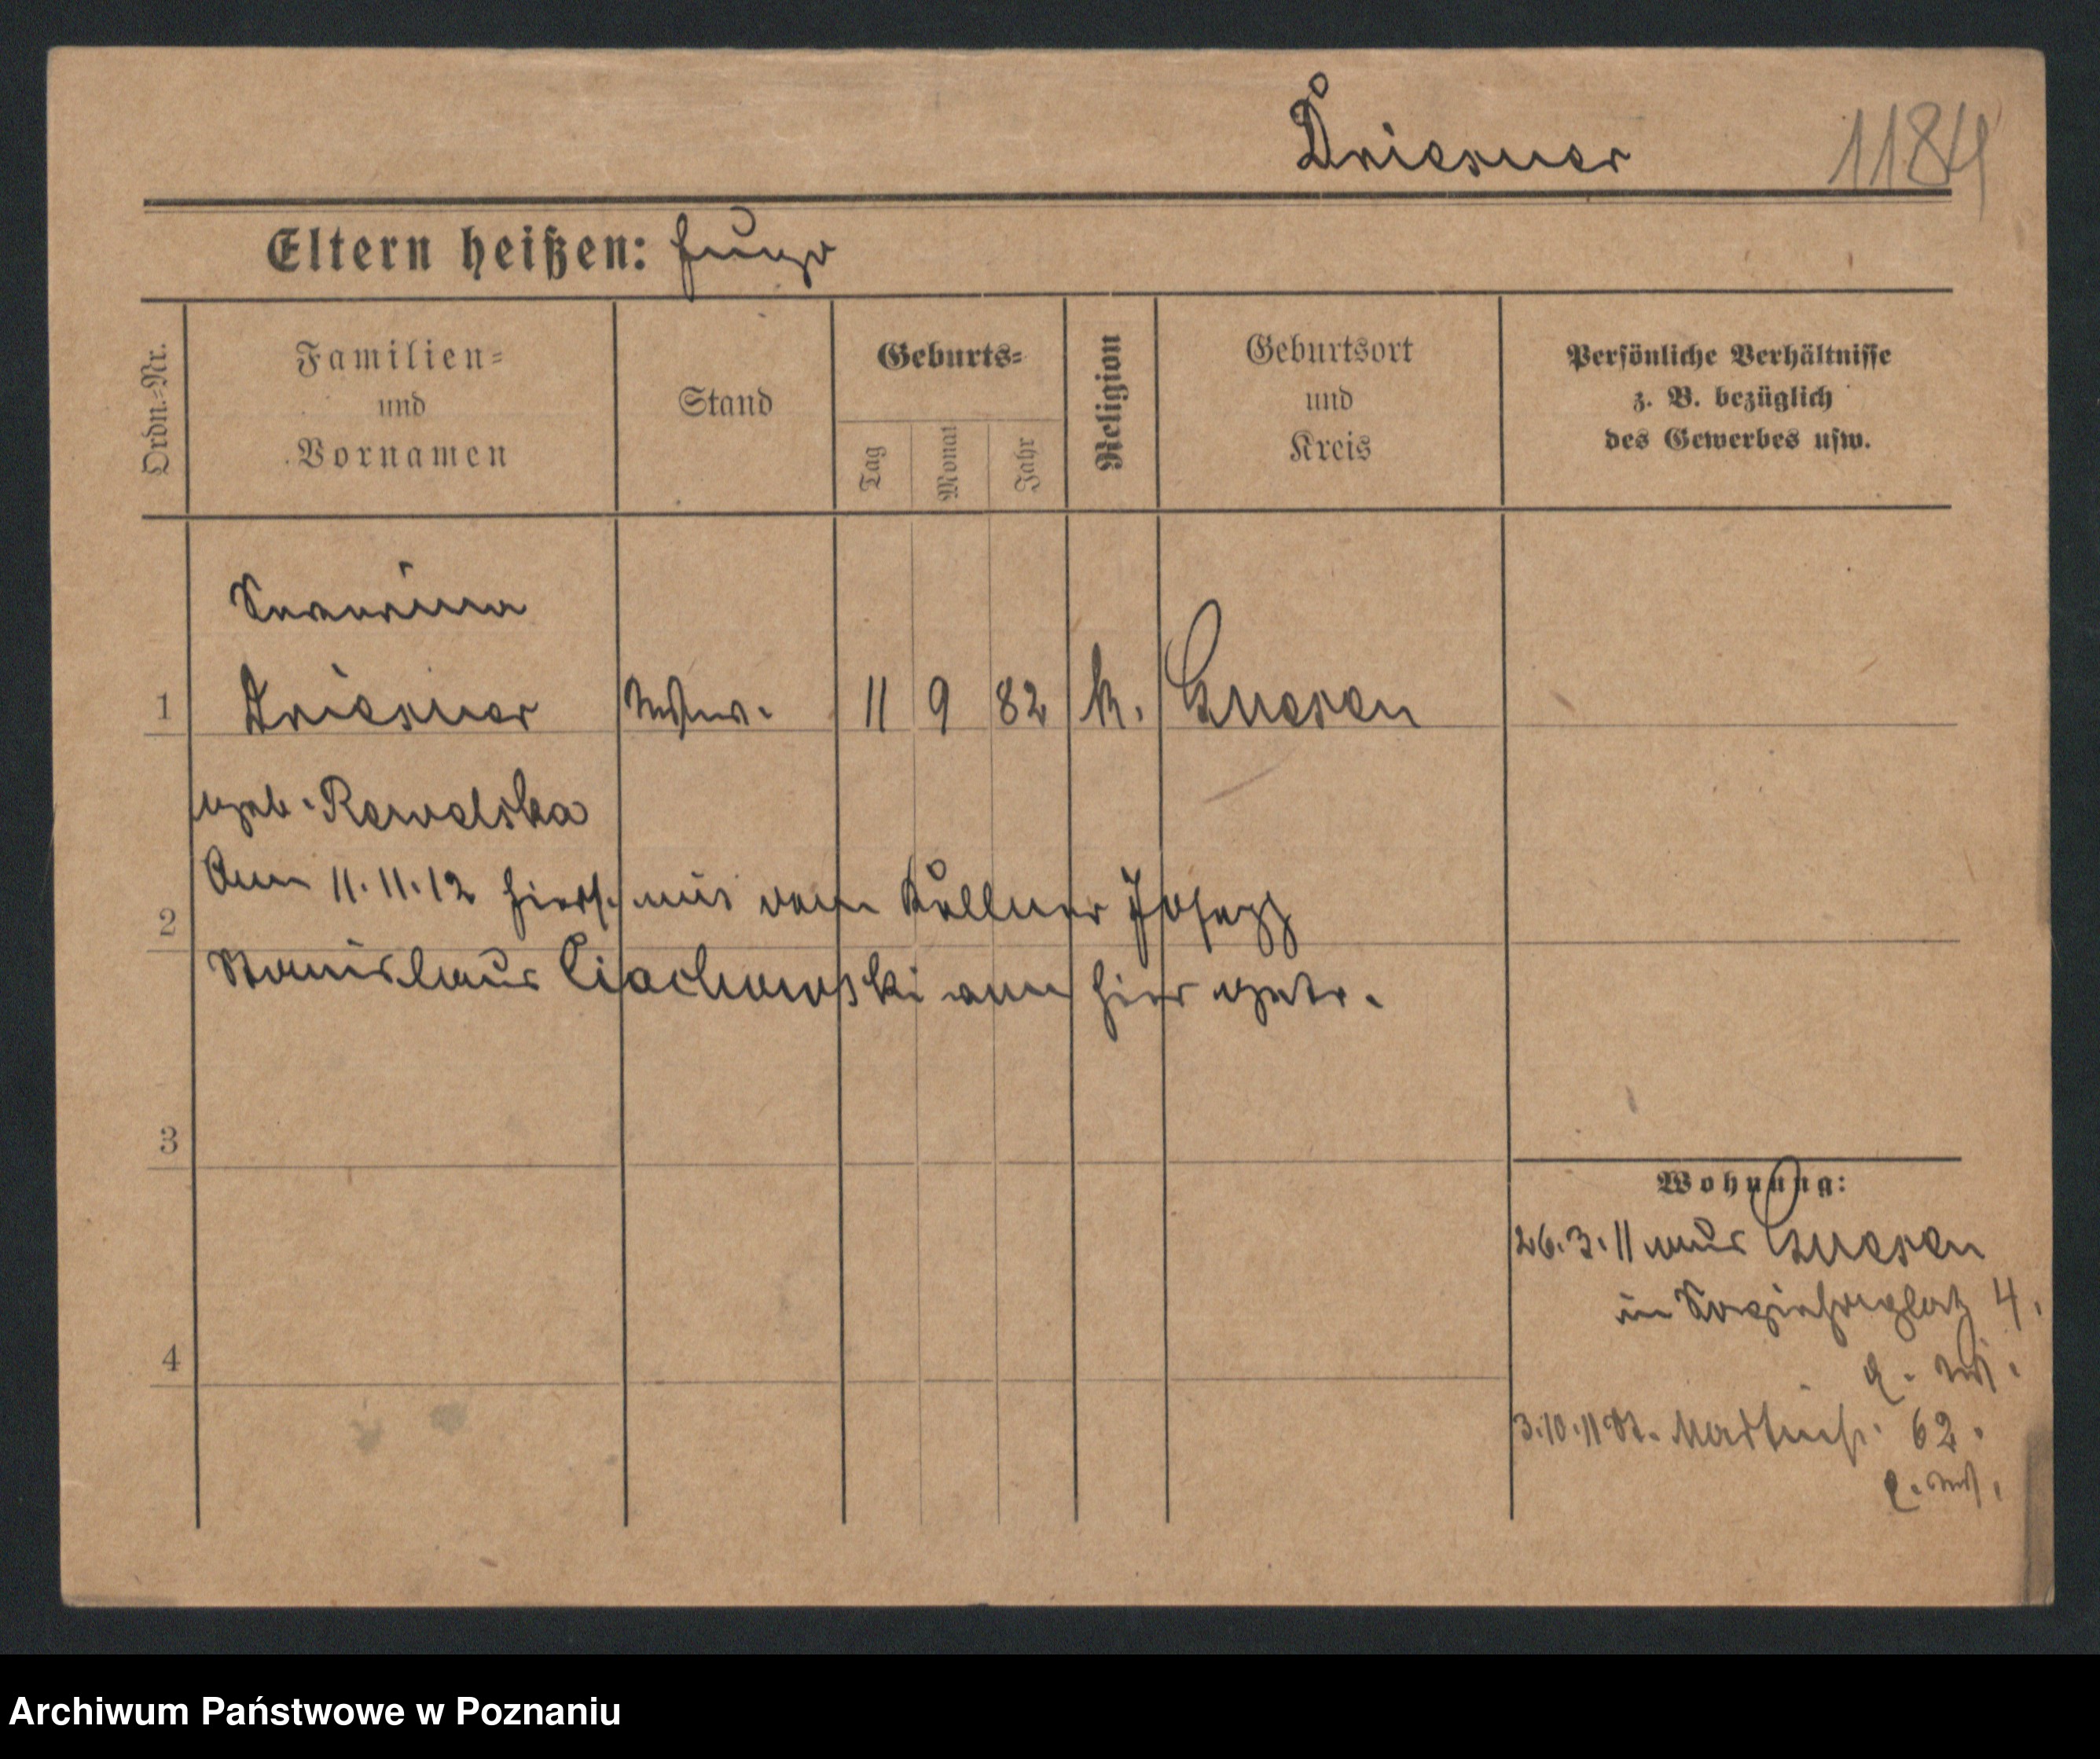 Driesner
1184
Eltern heißen: Hugo
Ordn.-Nr.
Familien-
und
Vornamen
Stand
Geburts-
Tag
Monat
Jahr
Religion
Geburtsort
und
Kreis
Persönliche Verhältnisse
z. B. bezüglich
des Gewerbes usw.
Severina
1 Driesner Wtw. 11 9 82 k. Gnesen
geb. Kowalska
Am 11.11.12 hiers. mit dem Kellner Josef
2
Stanislaus Ciachowski von hier getr.
3
Wohnung:
26.3.11 aus Gnesen
in Sapiehaplatz 4.
4
3.10.11 St. Martinstr. 62.
Archiwum Państwowe w Poznaniu